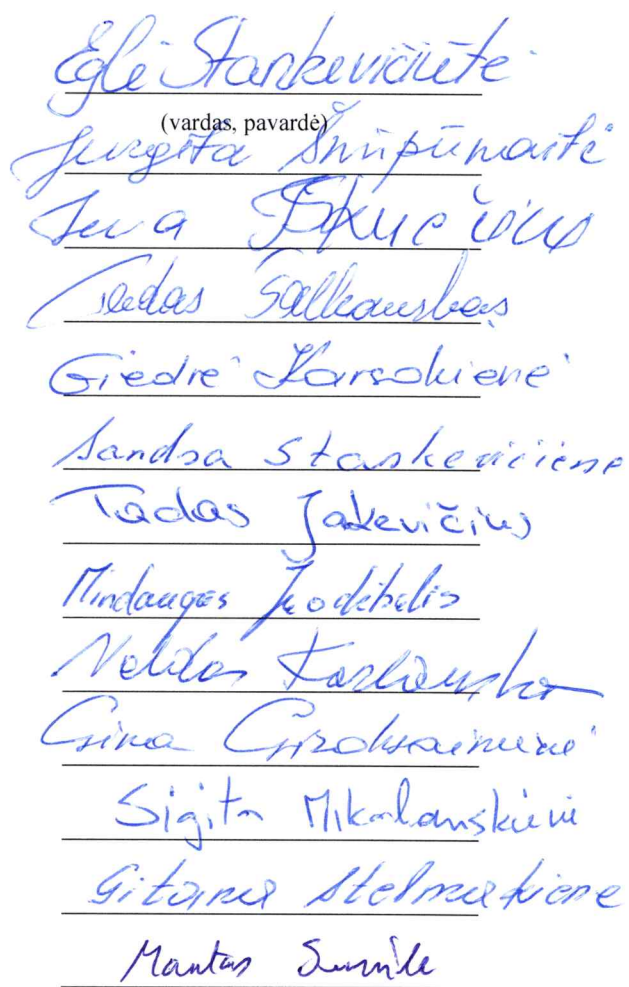 Eglė Stankevičiūtė
(vardas, pavardė)
Jurgita Šniipūnaitė
Ieva Škucius
Tadas Šalkauskas
Giedrė Karsokienė
Sandra Stankevičienė
Tadas Jakevičius
Mindaugas Juodėbalis
Valdas Kazlauskas
Gina
Sigita Mikalauskienė
Gitana Stelmakienė
Mantas